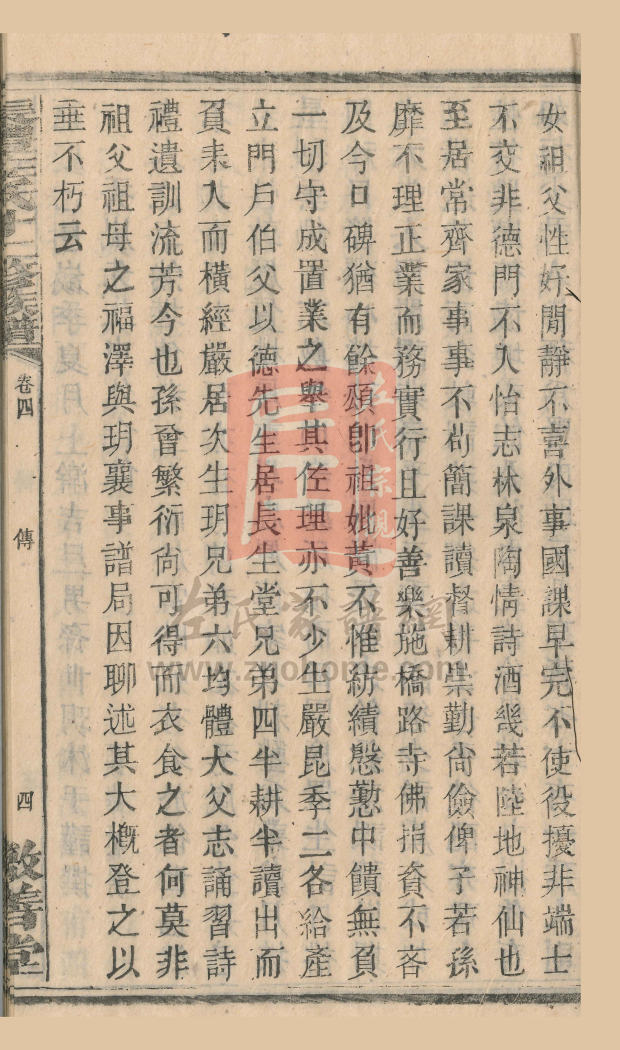 女祖父性好閒靜不喜外事國課早完不使役擾非端士
不交非德門不入怡志林泉陶情詩酒幾若陸地神仙也
至居常齊家事事不苟簡課讀督耕崇勤尙儉俾子若孫
靡不理正業而務實行且好善樂施橋路寺佛捐貲不吝
及今口碑猶有餘頌卽祖妣黃不惟紡績慇懃中饋無負
一切守成置業之舉其佐理亦不少生嚴昆季二各給產
立門戶伯父以德先生居長生堂兄弟四半耕半讀出而
負耒入而橫經嚴居次生玥兄弟六均體大父志誦習詩
禮遺訓流芳今也孫曾繁衍尙可得而衣食之者何莫非
祖父祖母之福澤與玥襄事譜局因聊述其大槪登之以
垂不朽云
左氏十二修族譜
卷四
傳
四
敬善堂
左氏宗親
左氏家譜網
www.zuohome.com